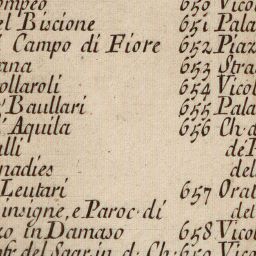 ompeo 650 Vicol
el Biscione 651 Pala
i Campo di Fiore 652 Piaz
ana 653 Stra
ollaroli 654 Vicol
Baullari 655 Pala
Aquila 656 Ch. d
lli de P
nadies del
Leutari 657 Orat
insigne, e Paroc. di del
zo in Damaso 658 Vicol
del Sagr. in d. Ch. 659 Vico